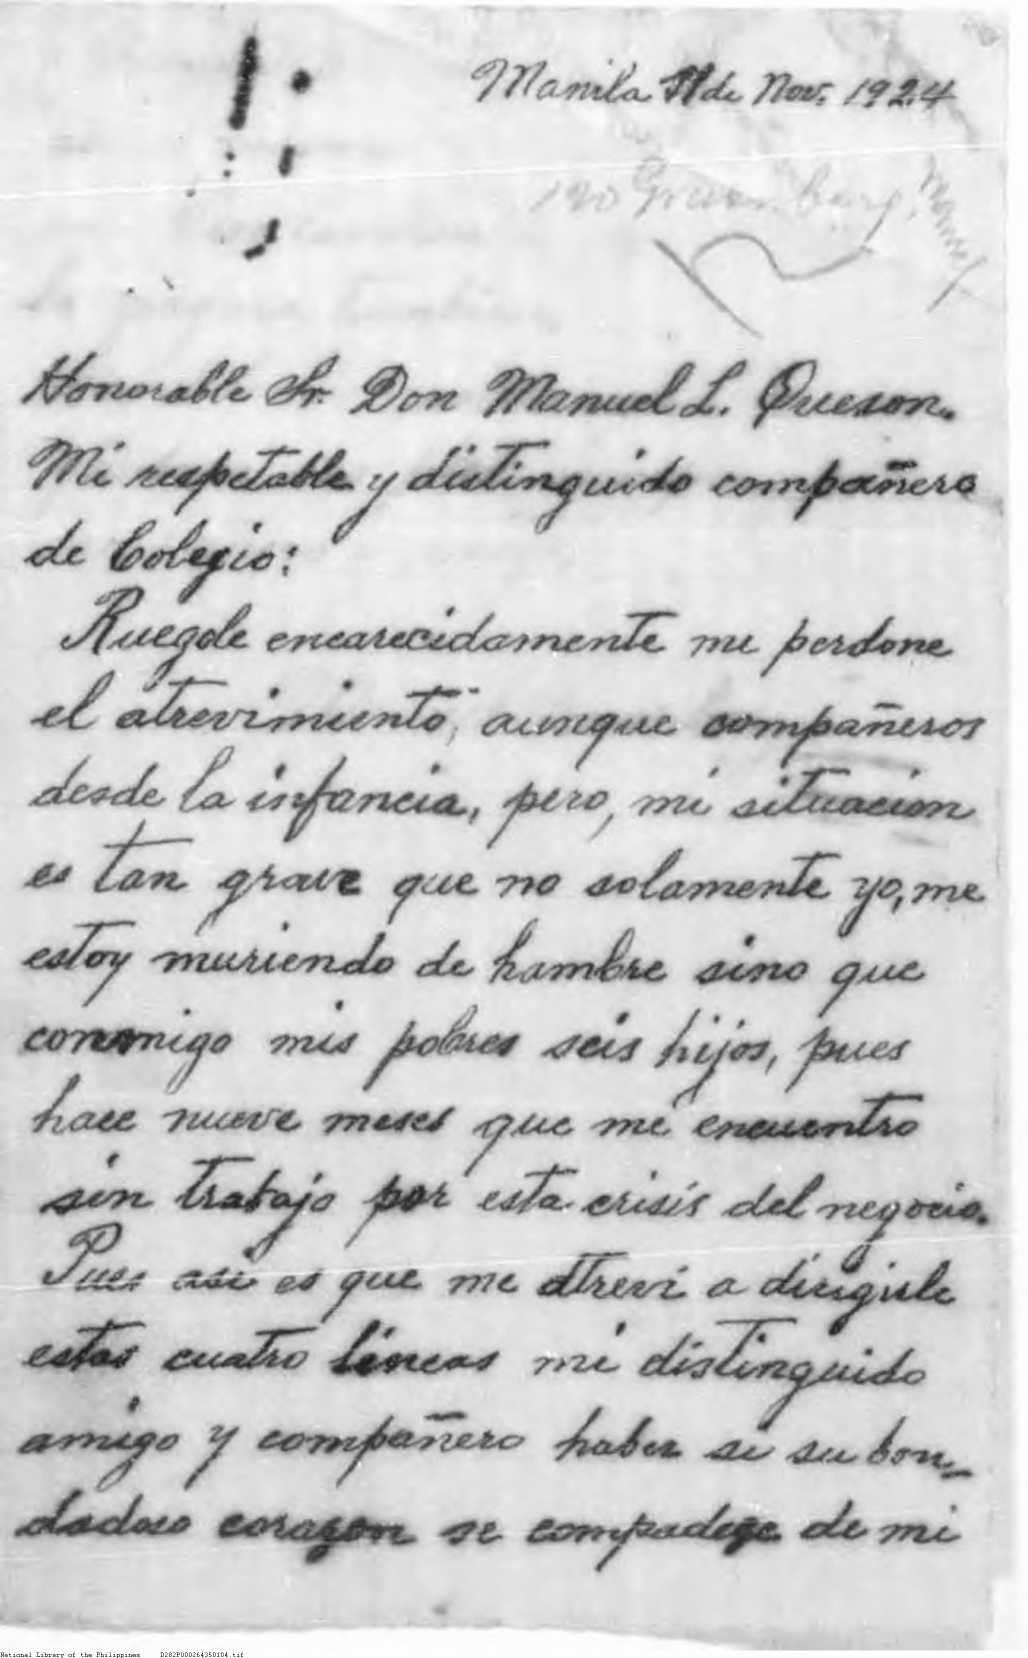 Manila 11 de Nov. 1924
120
Honorable Sr. Don Manuel L. Queson.
Mi respetable y distinguido compañero
de Colegio:
Ruegole encarecidamente me perdone
el atrevimiento, aunque compañeros
desde la infancia, pero, mi situacion
es tan grave que no solamente yo, me
estoy muriendo de hambre sino que
conmigo mis pobres seis hijos, pues
hace nueve meses que me encuentro
sin trabajo por esta crisis del negocio.
Pues asi es que me atrevi a dirigirle
estas cuatro lineas mi distinguido
amigo y compañero haber si su bon-
dadoso corazon se compadege de mi
National Library of the Philippines D282P000264350104.tif